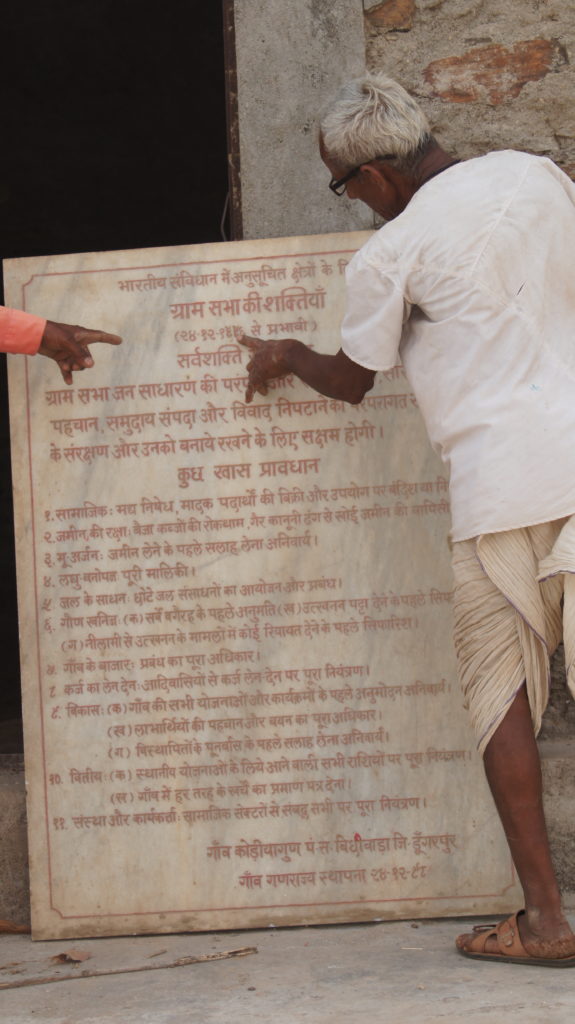 भारतीय संविधान में अनुसूचित क्षेत्रों के
ग्राम सभा की शक्तियाँ
(२४-१२-१९९६ से प्रभावी)
सर्वशक्ति
ग्राम सभा जन साधारण की और
पहचान, समुदाय संपदा और विवाद निपटाने की परंपरागत
के संरक्षण और उनको बनाये रखने के लिए सक्षम होगी।
कुछ खास प्रावधान
१. सामाजिक: मद्य निषेध, मादक पदार्थों की बिक्री और उपयोग पर बंदिश या
२. जमीन की रक्षा: बेजा कब्जों की रोकथाम, गैर कानूनी ढंग से खोई जमीन की वापिसी
३. भू-अर्जन: जमीन लेने के पहले सलाह लेना अनिवार्य।
४. लघु-वनोपज पूरी मालिकी।
५. जल के साधन: छोटे जल संसाधनो का आयोजन और प्रबंध।
६. गौण खनिज: (क) सर्वे वगैरह के पहले अनुमति (ख) उत्खनन पट्टा देने के पहले
(ग) नीलामी से उत्खनन के मामलों में कोई रियायत देने के पहले सिफारिश।
७. गाँव के बाजार: प्रबंध का पूरा अधिकार।
८. कर्ज का लेन देन: आदिवासियों से कर्ज लेन-देन पर पूरा नियंत्रण।
९. विकास: (क) गाँव की सभी योजनाओं और कार्यक्रमों के पहले अनुमोदन अनिवार्य।
(ख) लाभार्थियों की पहचान और चयन का पूरा अधिकार।
(ग) विस्थापितों के पूनर्वास के पहले सलाह लेना अनिवार्य।
१०. वित्तीय: (क) स्थानीय योजनाओं के लिये आने वाली सभी राशियों पर पूरा नियंत्रण।
(ख) गाँव में हर तरह के खर्चे का प्रमाण पत्र देना।
११. संस्था और कार्यकर्ता: सामाजिक सेक्टरों से संबद्ध सभी पर पूरा नियंत्रण।
गाँव कोड़ीयागुण पं स. बिछीवाड़ा जि. डूँगरपुर
गाँव गणराज्य स्थापना २४-१२-९८